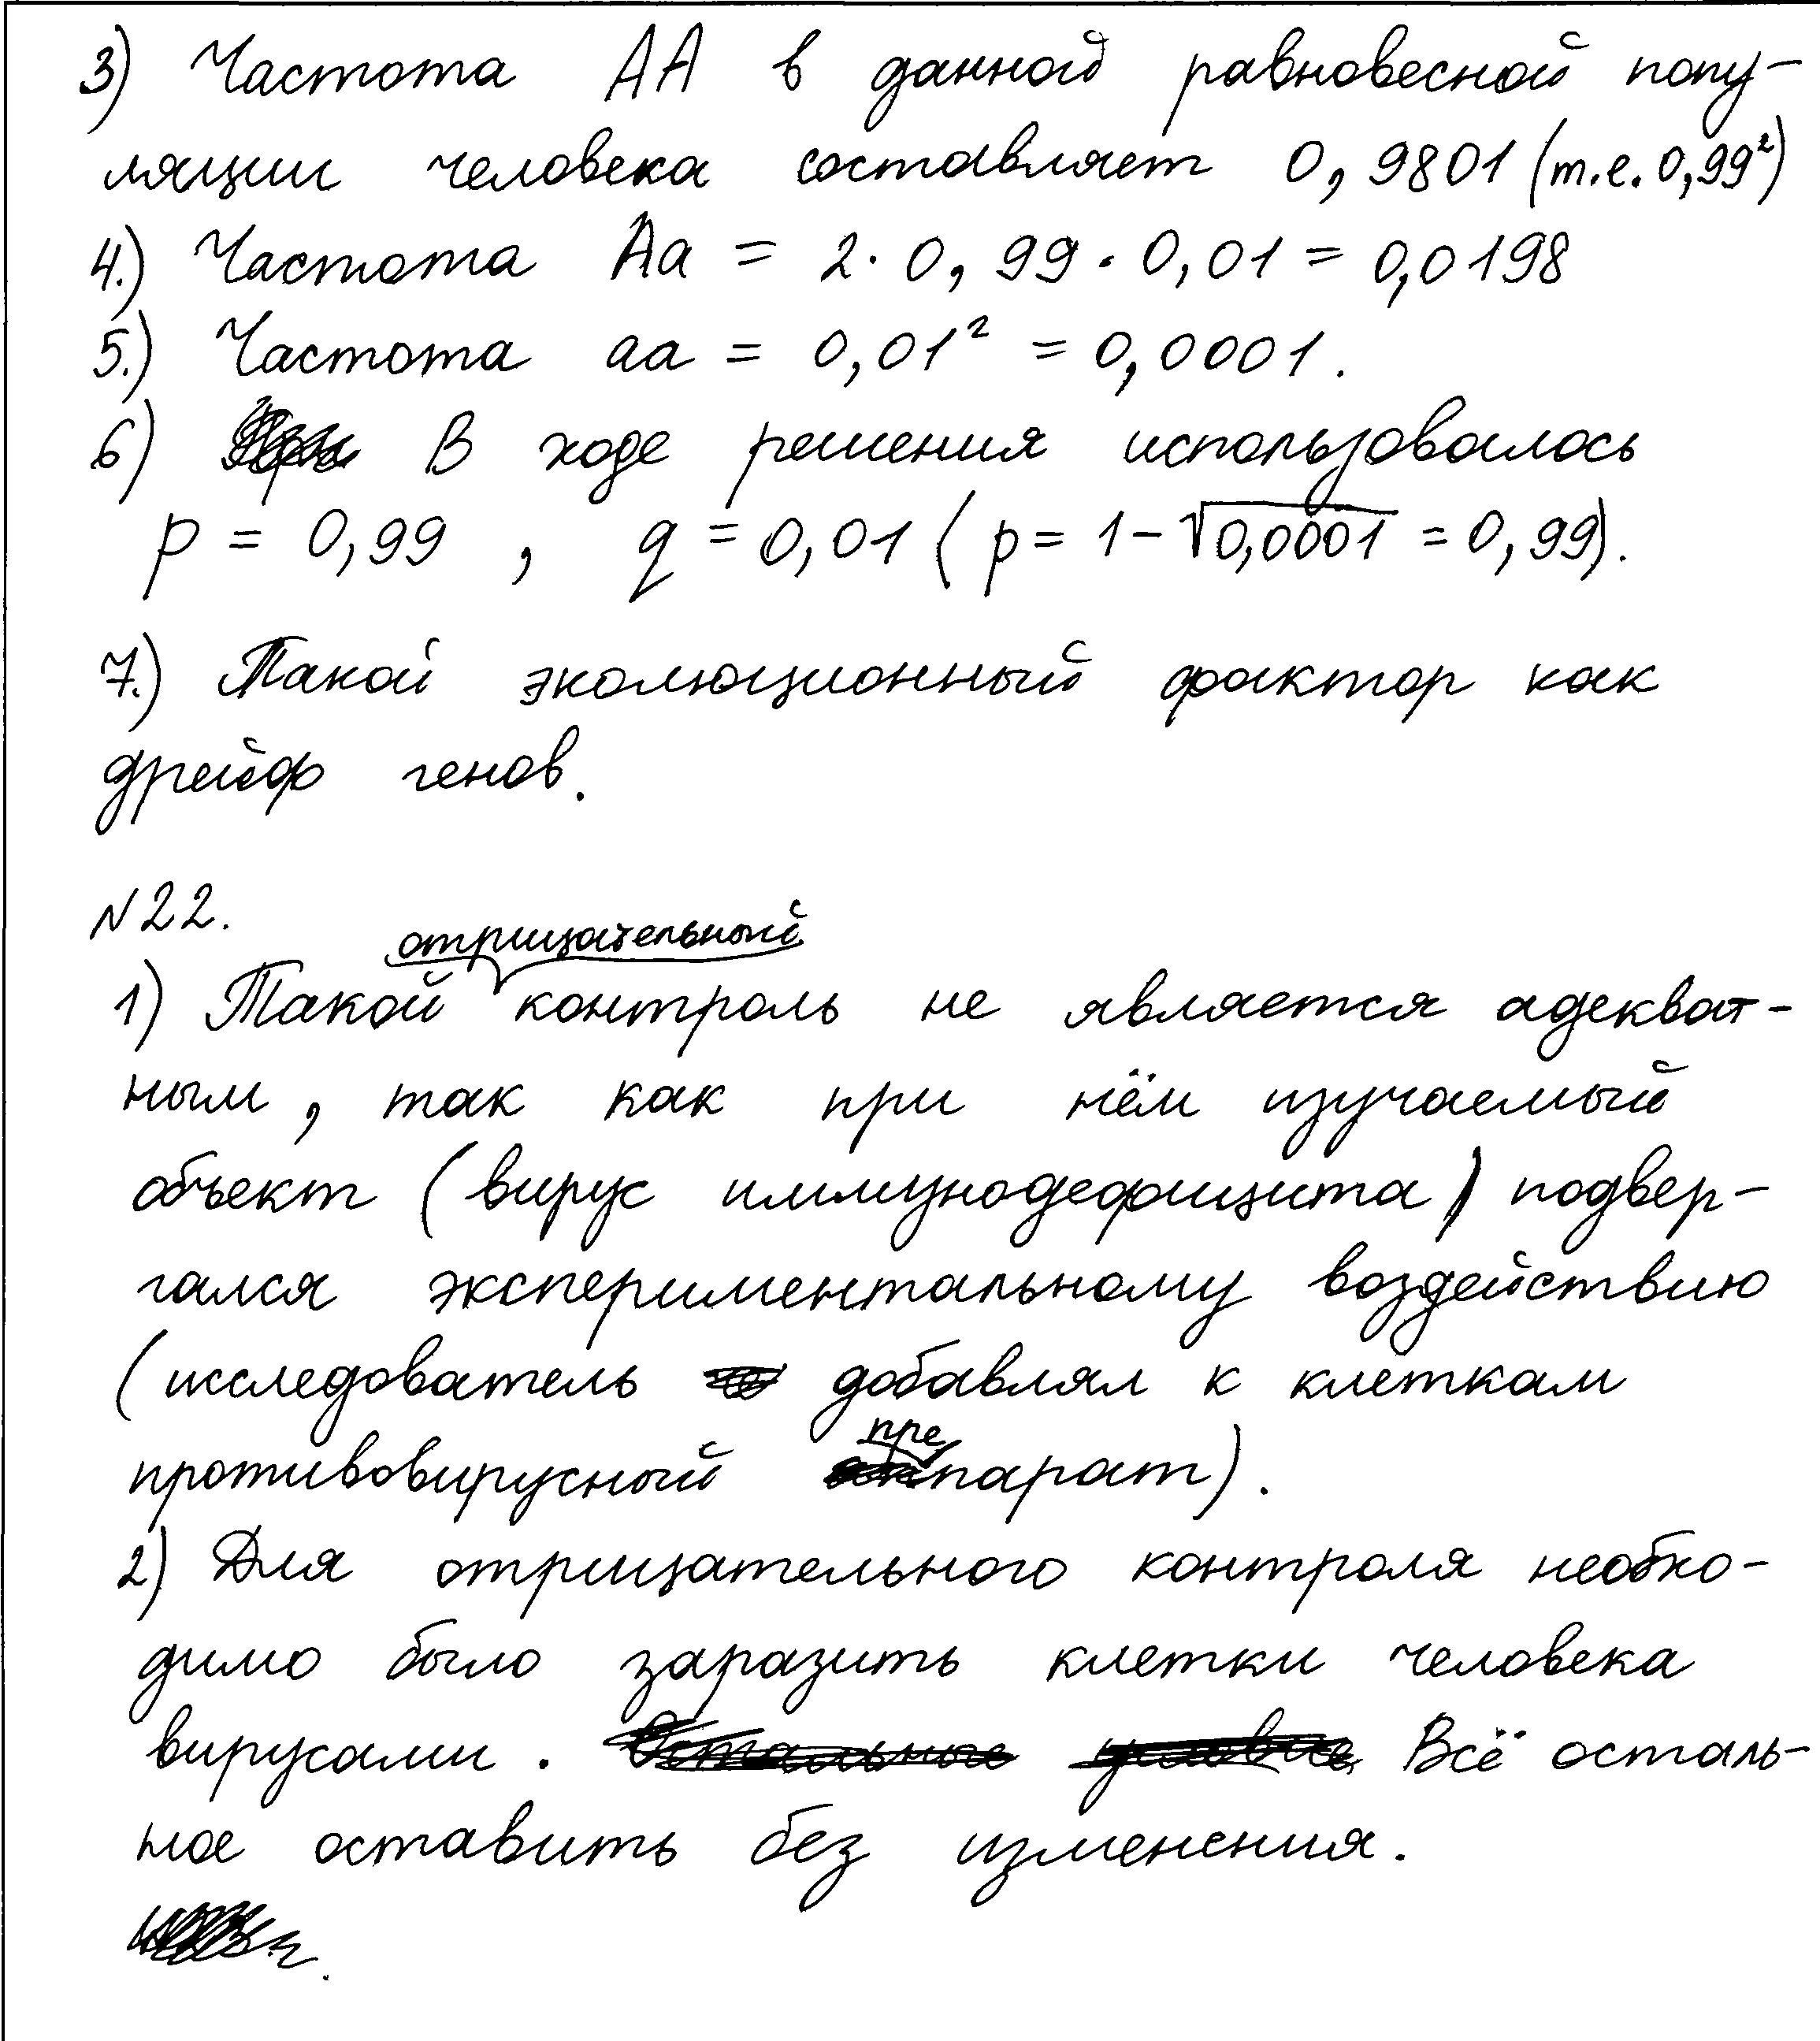 3) Частота АА в данной равновесной попу-
ляции человека составляет 0,9801 (т.е. 0,99²)
4.) Частота Аа = 2·0,99·0,01 = 0,0198
5.) Частота аа = 0,01² = 0,0001.
6) В ходе решения использовалось
p = 0,99 , q = 0,01 ( p = 1 - √0,0001 = 0,99).
7.) Такой эколюционный фактор как
дрейф генов.
№22.
отрицательный
1) Такой контроль не является адекват-
ным, так как при нём изучаемый
объект (вирус иммунодефицита) подвер-
гался экспериментальному воздействию
(исследователь добавлял к клеткам
противовирусный препарат).
2) Для отрицательного контроля необхо-
димо было заразить клетки человека
вирусами. Всё осталь-
ное оставить без изменения.